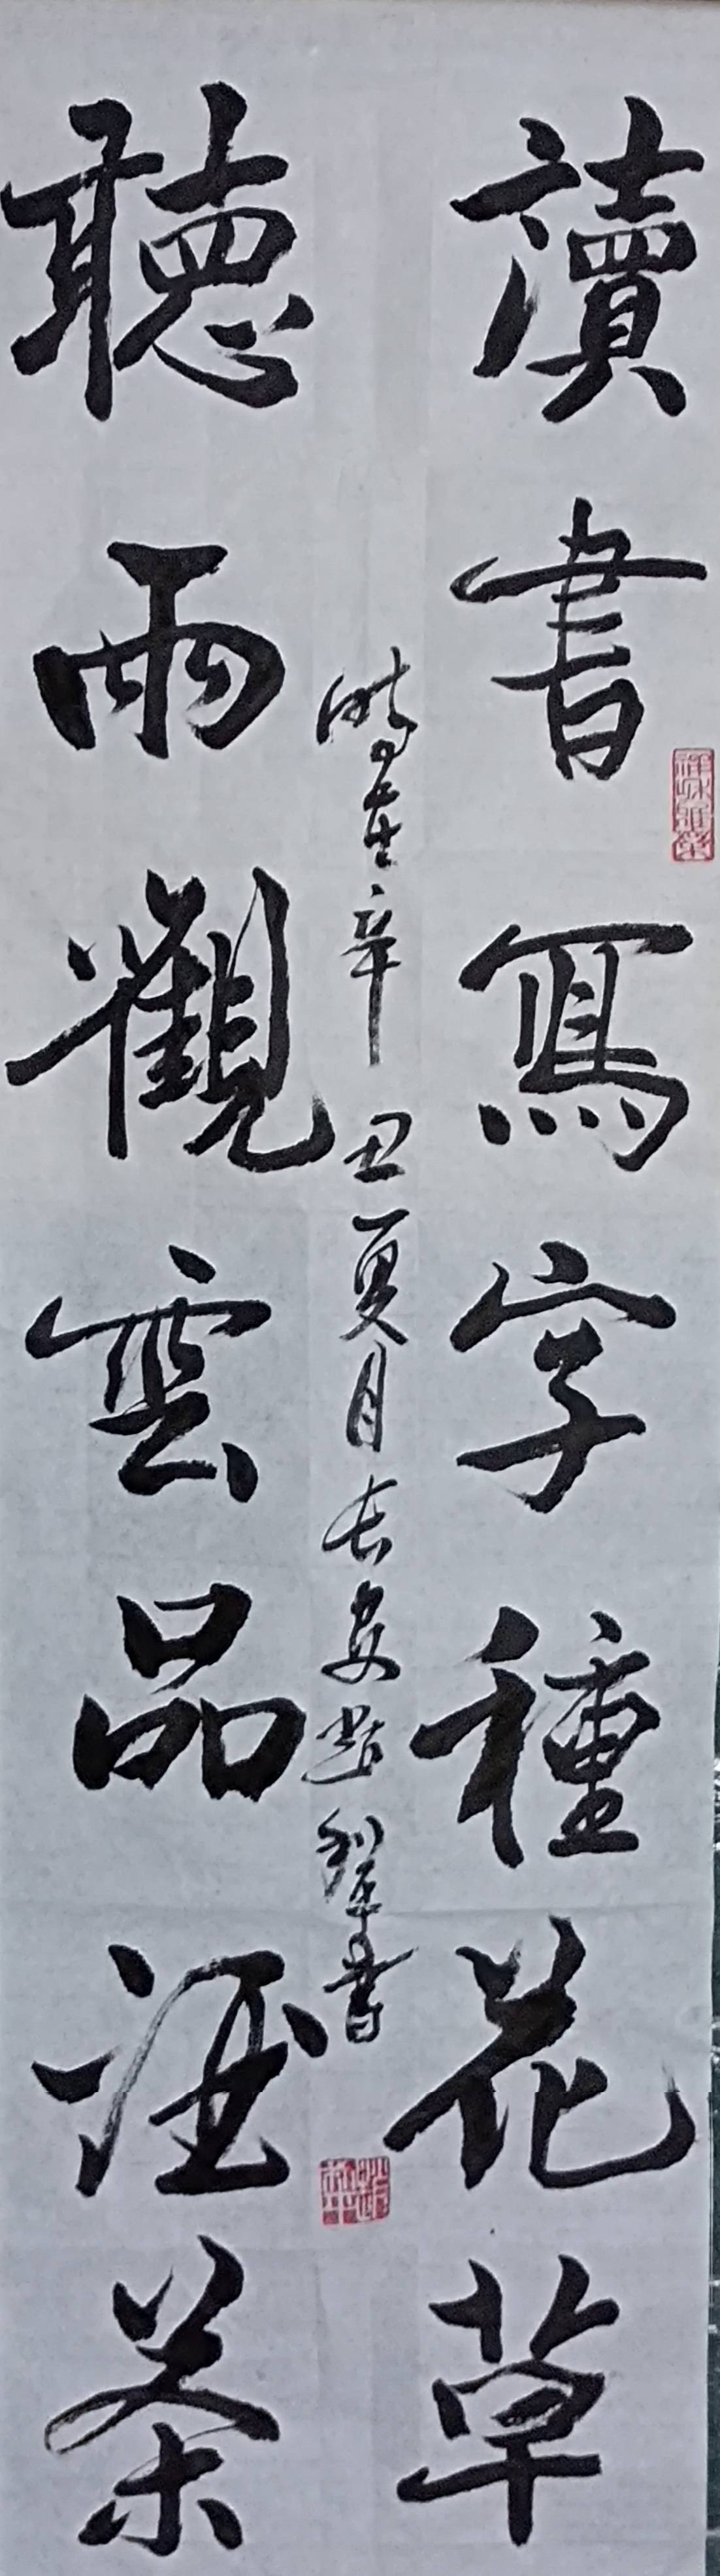 讀書寫字種花草
聽雨觀雲品酒茶
時在辛丑夏月長安趙翠書